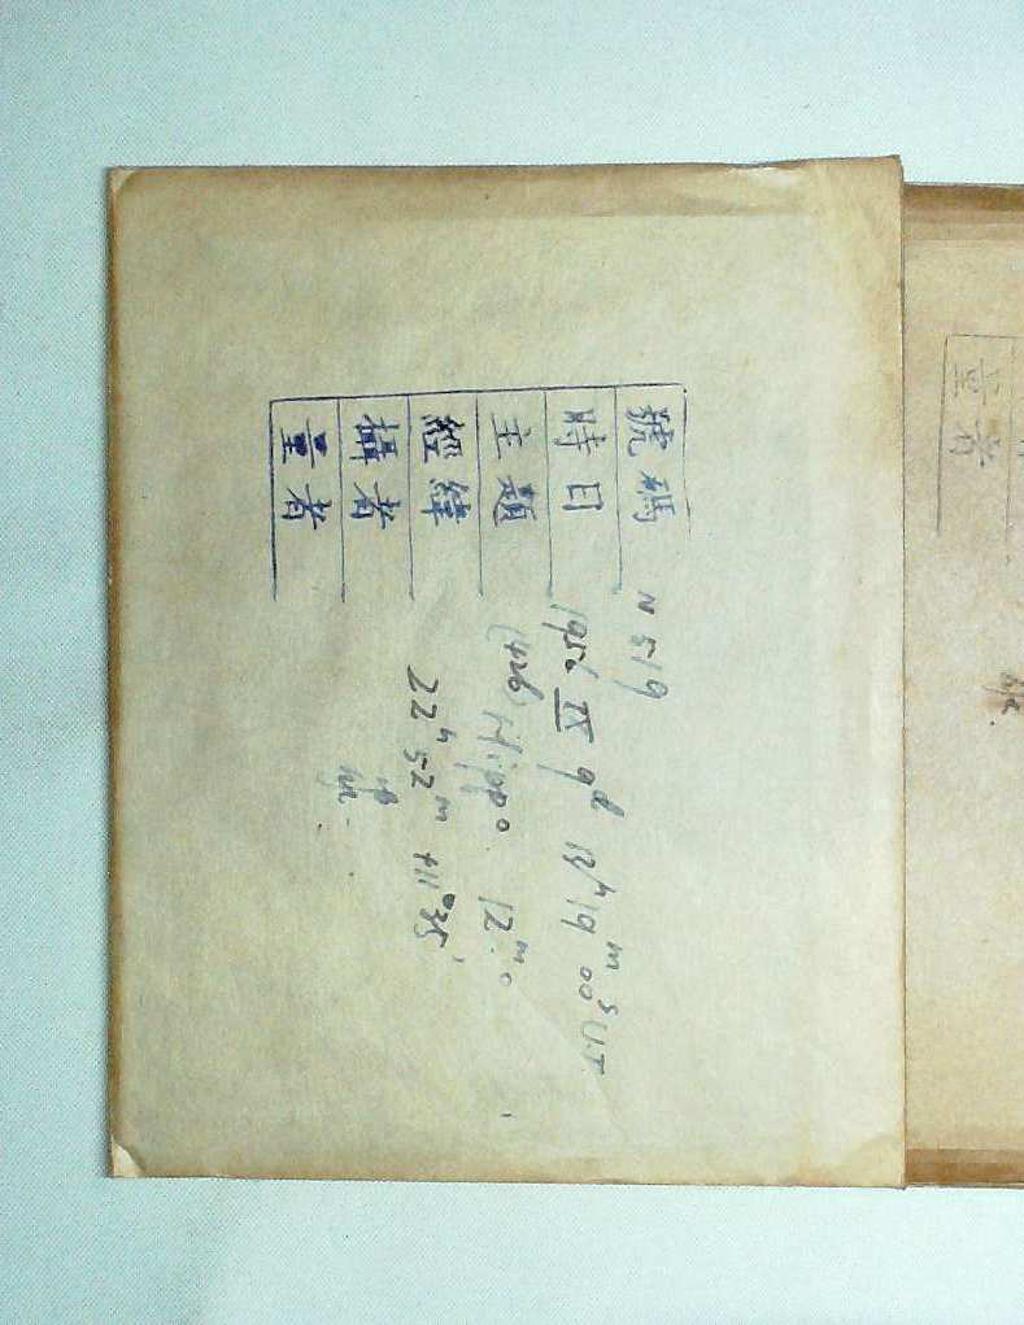 號碼 N 519
時日 1956 IX 9d 13h 19m 00s U.T
主題 (426) Hippo. 12.m0
經緯 22h 52m +11°35'
攝者
量者
量者